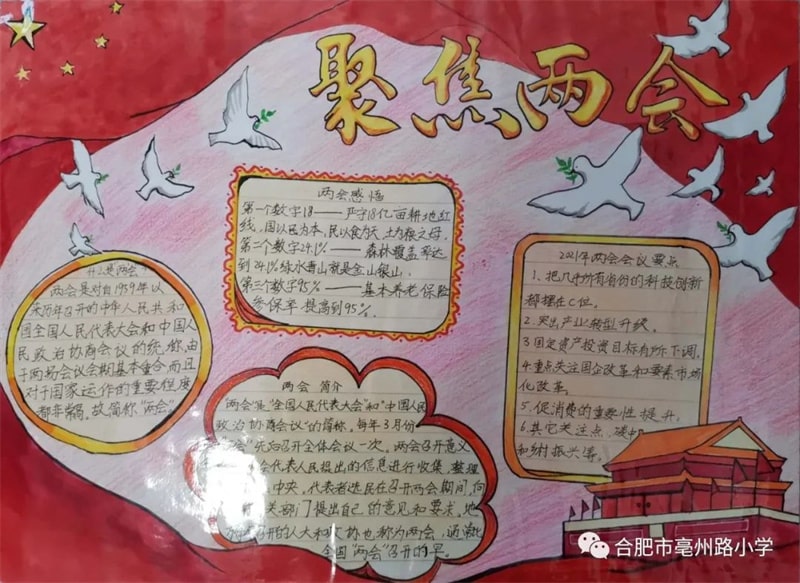 聚焦两会
两会感悟
第一个数字18——严守18亿亩耕地红
线。国以民为本，民以食为天，土为粮之母。
第二个数字24.1%——森林覆盖率达
到24.1%绿水青山就是金山银山。
第三个数字95%——基本养老保险
参保率提高到95%。
两会
两会是对自1959年以
来历年召开的中华人民共和
国全国人民代表大会和中国人
民政治协商会议的统称，由
于两场会议会期基本重合而且
对于国家运作的重要程度
都非常高。故简称"两会"。
2021年两会会议要点
1.把几乎所有省份的科技创新
都摆在C位。
2.突出产业转型升级。
3.固定资产投资目标有所下调。
4.重点关注国企改革和要素市场
化改革。
5.促消费的重要性提升。
6.其它关注点、碳中
和乡村振兴等。
两会 简介
"两会"是"全国人民代表大会"和"中国人民
政治协商会议"的简称。每年3月份
"两会"先后召开全体会议一次。两会召开意义
会代表人民提出的信息进行收集、整理
中央。代表着选民在召开两会期间，向
关部门提出自己的意见和要求。地
召开的人大和政协也称为两会，通常比
全国"两会"召开的早。
合肥市亳州路小学